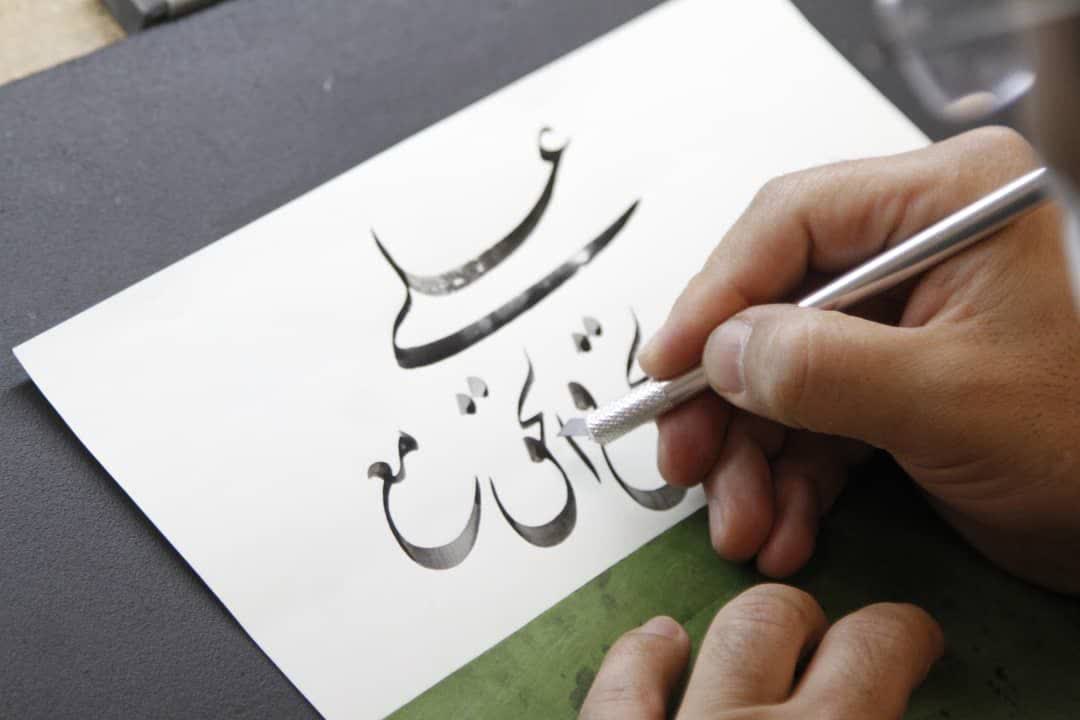 علی
الحق مع